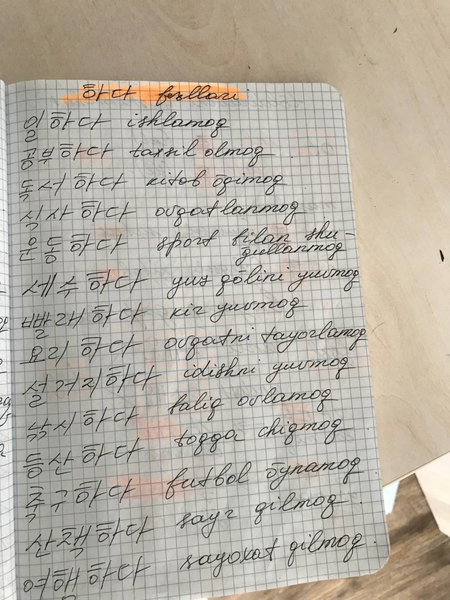 하다 fe'llari
일하다 ishlamoq
공부하다 taxsil olmoq
독서하다 kitob õqimoq
식사하다 ovqatlanmoq
운동하다 sport bilan shu-
ģullanmoq
세수하다 yuz qõlini yuvmoq
빨래하다 kir yuvmoq
요리하다 ovqatni tayorlamoq
설거지하다 idishni yuvmoq
낚시하다 baliq ovlamoq
등산하다 toqqa chiqmoq
축구하다 futbol õynamoq
산책하다 sayr qilmoq
여행하다 sayoxat qilmoq